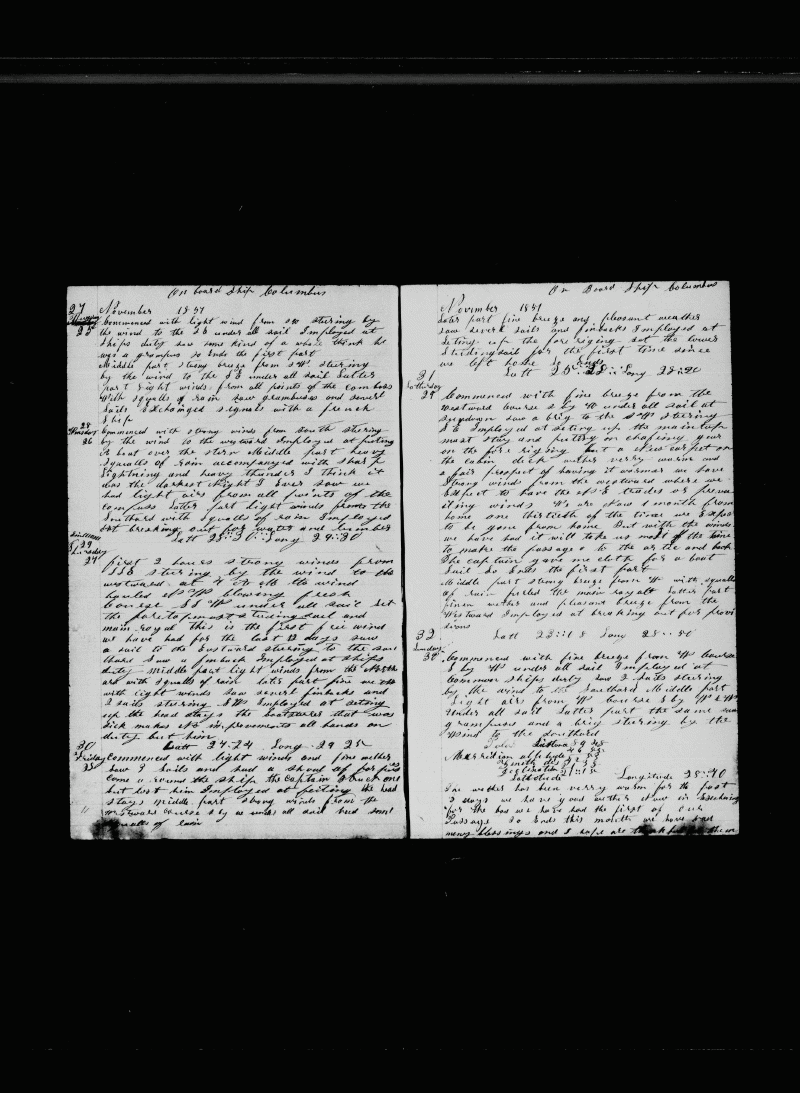 On board Ship Columbus
27 November 1851
Commenced with light wind from SW stering by
25 the wind to the SE under all sail Imployed at
Ships duty saw some kind of a whale think he
was a grampus so Ends the first part
Middle part strong breeze from SW stering
by the wind to the SE under all sail Latter
part light winds from all points of the Compass
With squalls of rain saw grampuses and severl
Sails Exchanged signals with a french
Ship
28 Commenced with strong winds from South stering
26 by the wind to the westward Imployed at puting
A boat over the stern Middle part heavy
Squalls of rain accompanyed with sharp
Lightning and heavy thunder I think it
was the darkest night I Ever saw we
had light airs from all points of the
compass Later part light winds from the
Southard with squalls of rain Imployed
at breaking out for water and lumber
Latt 25:30 Long 29:30
29
27 first 2 hours strong winds from
SSE stering by the wind to the
westward at 4 the wind
hauled blowing fresh
Course under all sail set
the foretopmast studing sail and
main royal this is the first free wind
we have had for the last 12 days saw
a sail to the Eastward stering to the
Saw a finback Imployed at Ships
duty middle part light winds from the
with squalls of rain later part fine
with light winds Saw severl finbacks and
2 sails stering Imployed at seting
up the head stays the boatsteerer that was
sick makes improvements all hands on
duty but him
Latt 24:24 Long 29 25
30 Friday commenced with light winds and fine wether
Saw 2 Sails and had a shoal of
come around the ship the captain struck one
but lost him Imployed at fitting the head
stays middle part strong winds from the
Westward course S by W under all sail had some
squalls of rain
On Board Ship Columbus
November 1851
later part fine breeze and pleasant weather
saw severl sails and finbacks Imployed at
seting up the fore riging set the lower
studingsail for the first time since
we left home so Ends
Latt 25:28 Long 28:20
31
29 Commenced with fine breeze from the
Westward course S by W under all sail at
Sundown saw a brig to the SW steering
SE Imployed at seting up the maintop
mast stay and putting on chafing gear
on the fore riging put a new carpet on
the cabin deck wether verry warm and
a fair prospect of having it warmer we have
Strong winds from the westward where we
Expect to have the NE trades or prevai
ling winds We are now 1 month from
home one thirtieth of the time we Expect
to be gone from home But with the winds
we have had it will take us most of the time
to make the passage to the artic and back
The captain gave me cloth for a boat
Suit So Ends the first part
Middle part strong breeze from W with squalls
of rain furled the main royall Latter part
finer wether and pleasant breeze from the
Westward Imployed at breaking out for provi
sions
Latt 23:18 Long 28:50
32
Sunday
30 Commenced with fine breeze from W Course
S by W under all sail Imployed at
Common ships duty saw 2 sails stering
by the wind to the Southard Middle part
Light airs from W Course S by W
Under all sail Latter part the same saw
grampuses and a brig steering by the
Wind to the Southard
Longitude 28:40
The wether has been verry warm for the past
2 days we have good wether now in Exchange
for the bad we have had the first of our
Passage So Ends this month we have had
many blessings and I hope are thankful for them